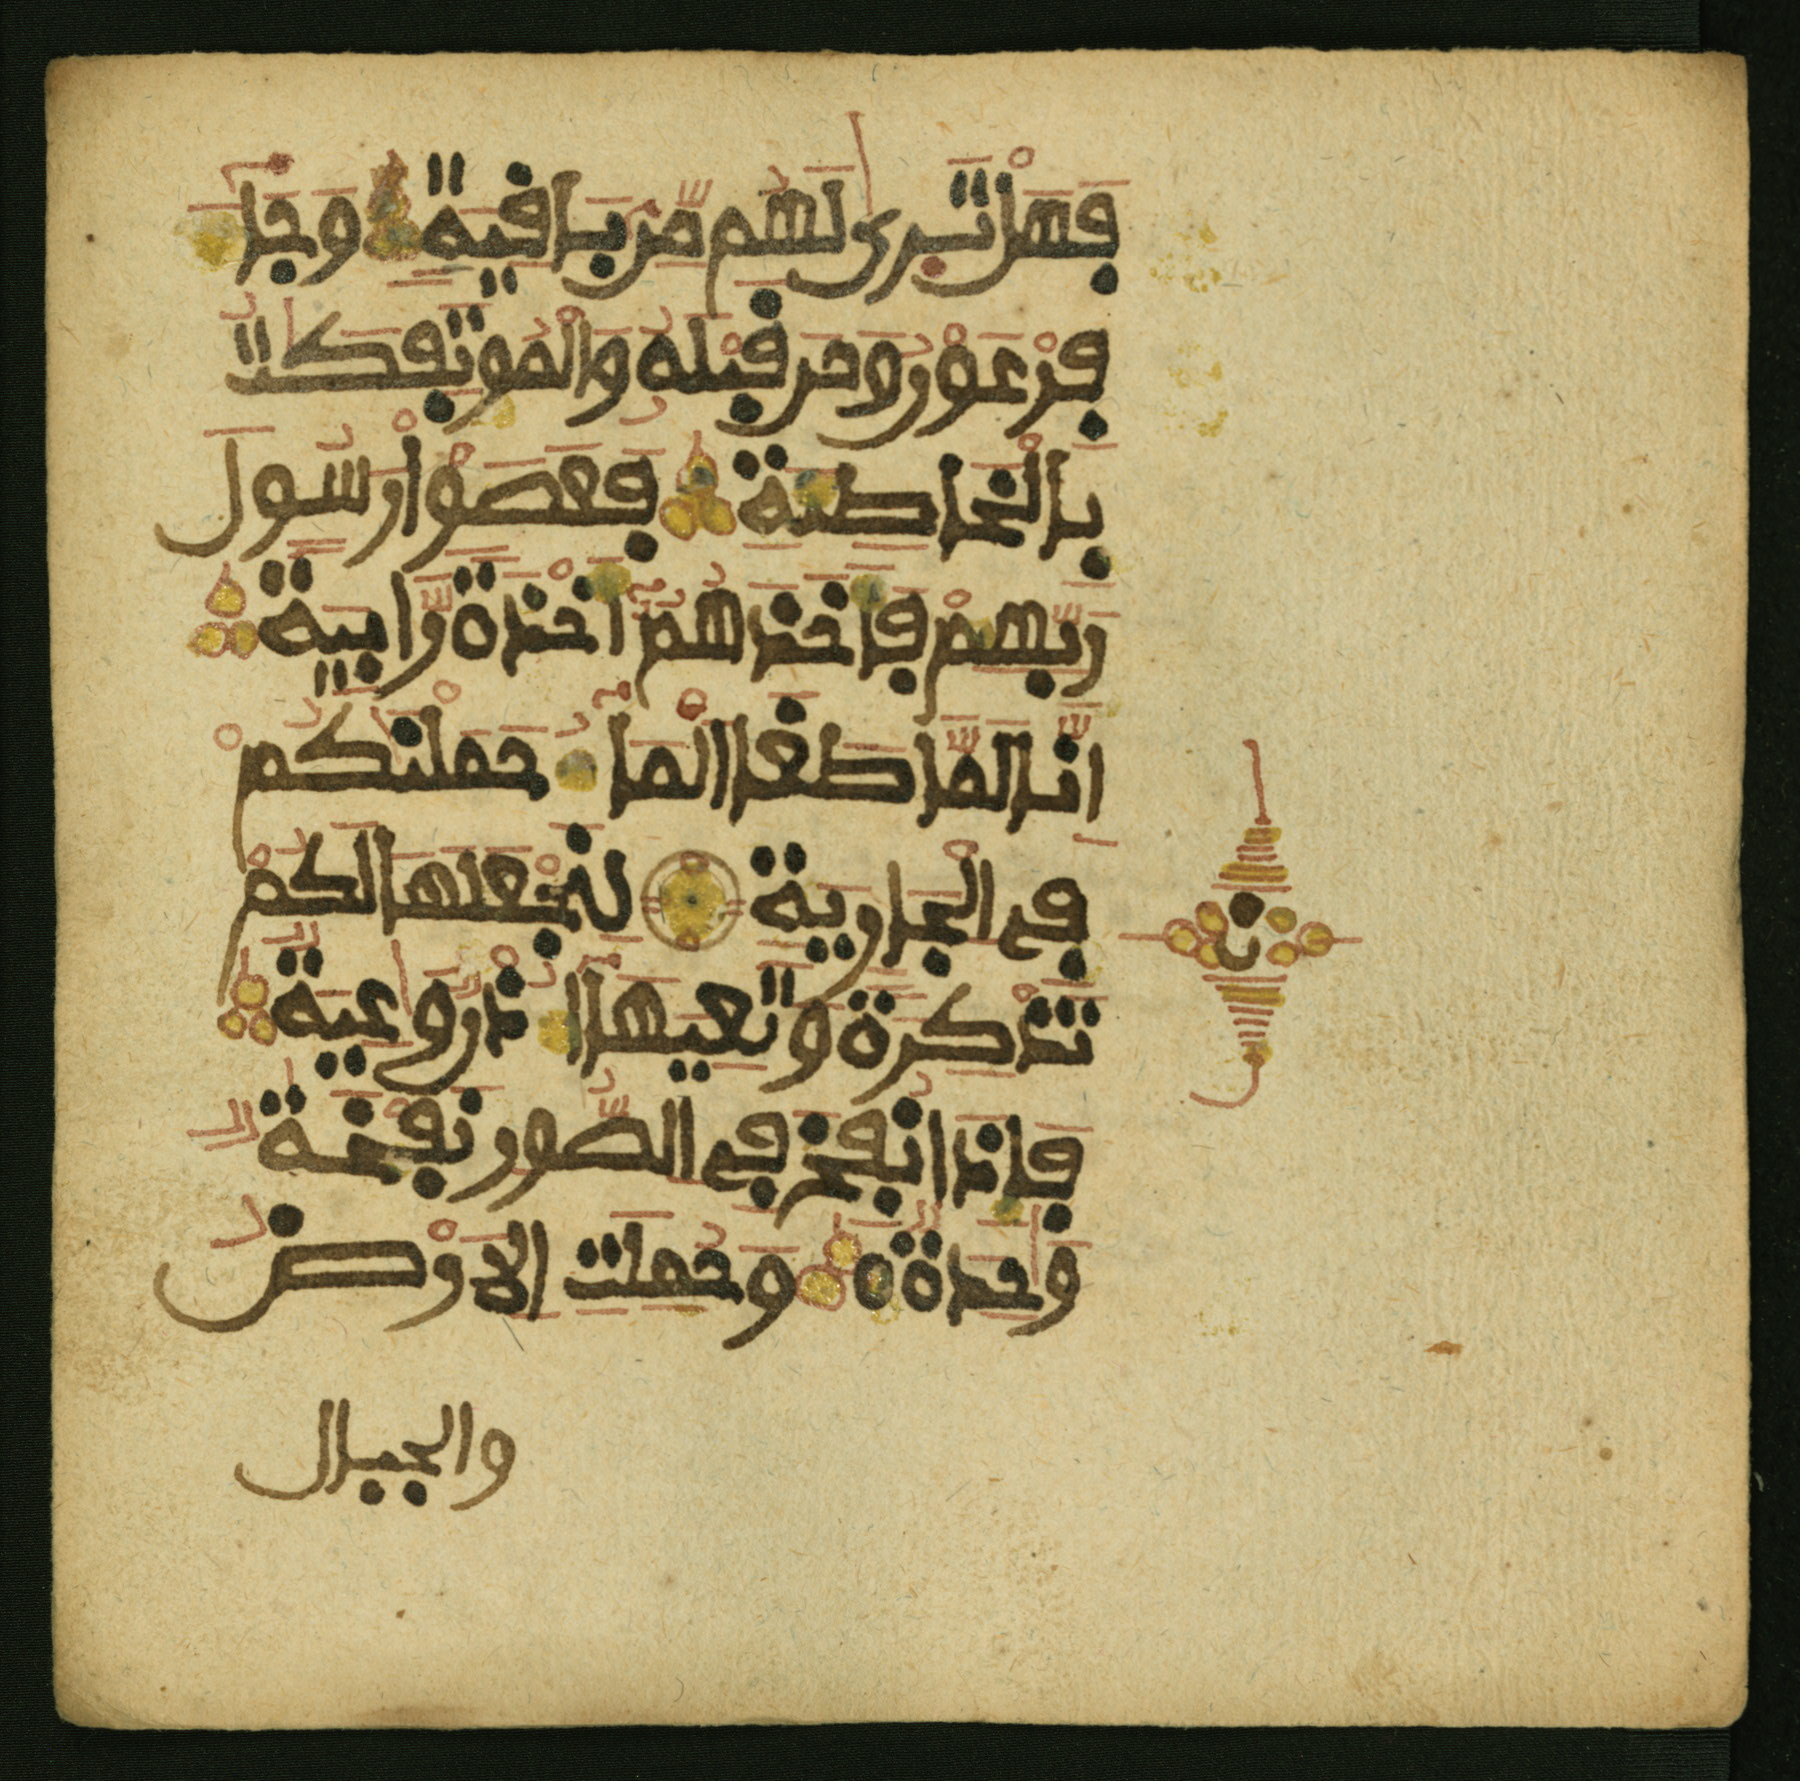 فهل ترى لهم من باقية وجا
فرعون ومن قبله والموتفكت
بالخاطئة فعصوا رسول
ربهم فأخذهم أخذة رابية
انا لما طغا الما حملنكم
في الجارية لنجعلها لكم
تذكرة وتعيها اذن وعية
فاذا نفخ في الصور نفخة
وحدة وحملت الارض
والجبال